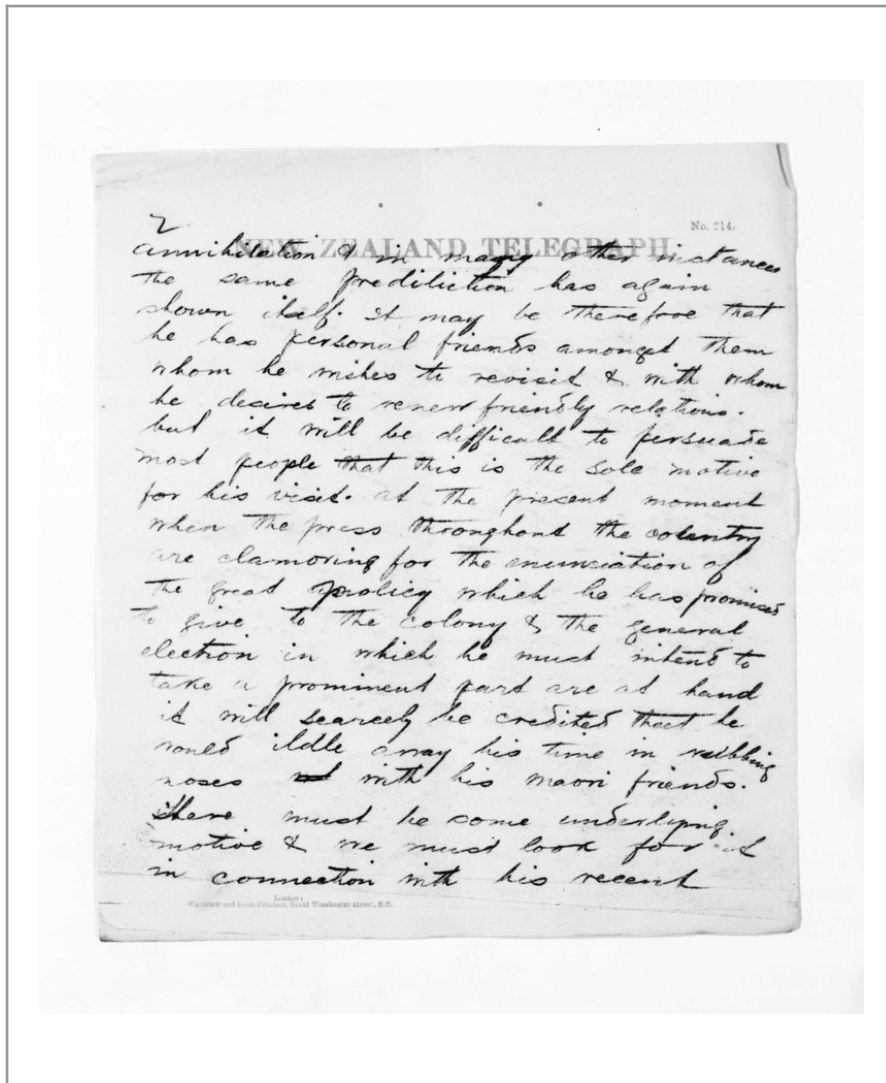 2
No. 214.
NEW ZEALAND TELEGRAPH.
annihilation & in many other instances
the same prediliction has again
shown itself. It may be therefore that
he has personal friends amongst them
whom he wishes to revisit & with whom
he desires to renew friendly relations.
but it will be difficult to persuade
most people that this is the sole motive
for his visit. at the present moment
when the press throughout the country
are clamoring for the enunciation of
the great policy which he has promised
to give to the colony & the general
election in which he must intend to
take a prominent part are at hand
it will scarcely be credited that he
would idle away his time in rubbing
noses with his maori friends.
there must be some underlying
motive & we must look for it
in connection with his recent
London:
Waterlow and Sons, Printers, Great Winchester Street, E.C.